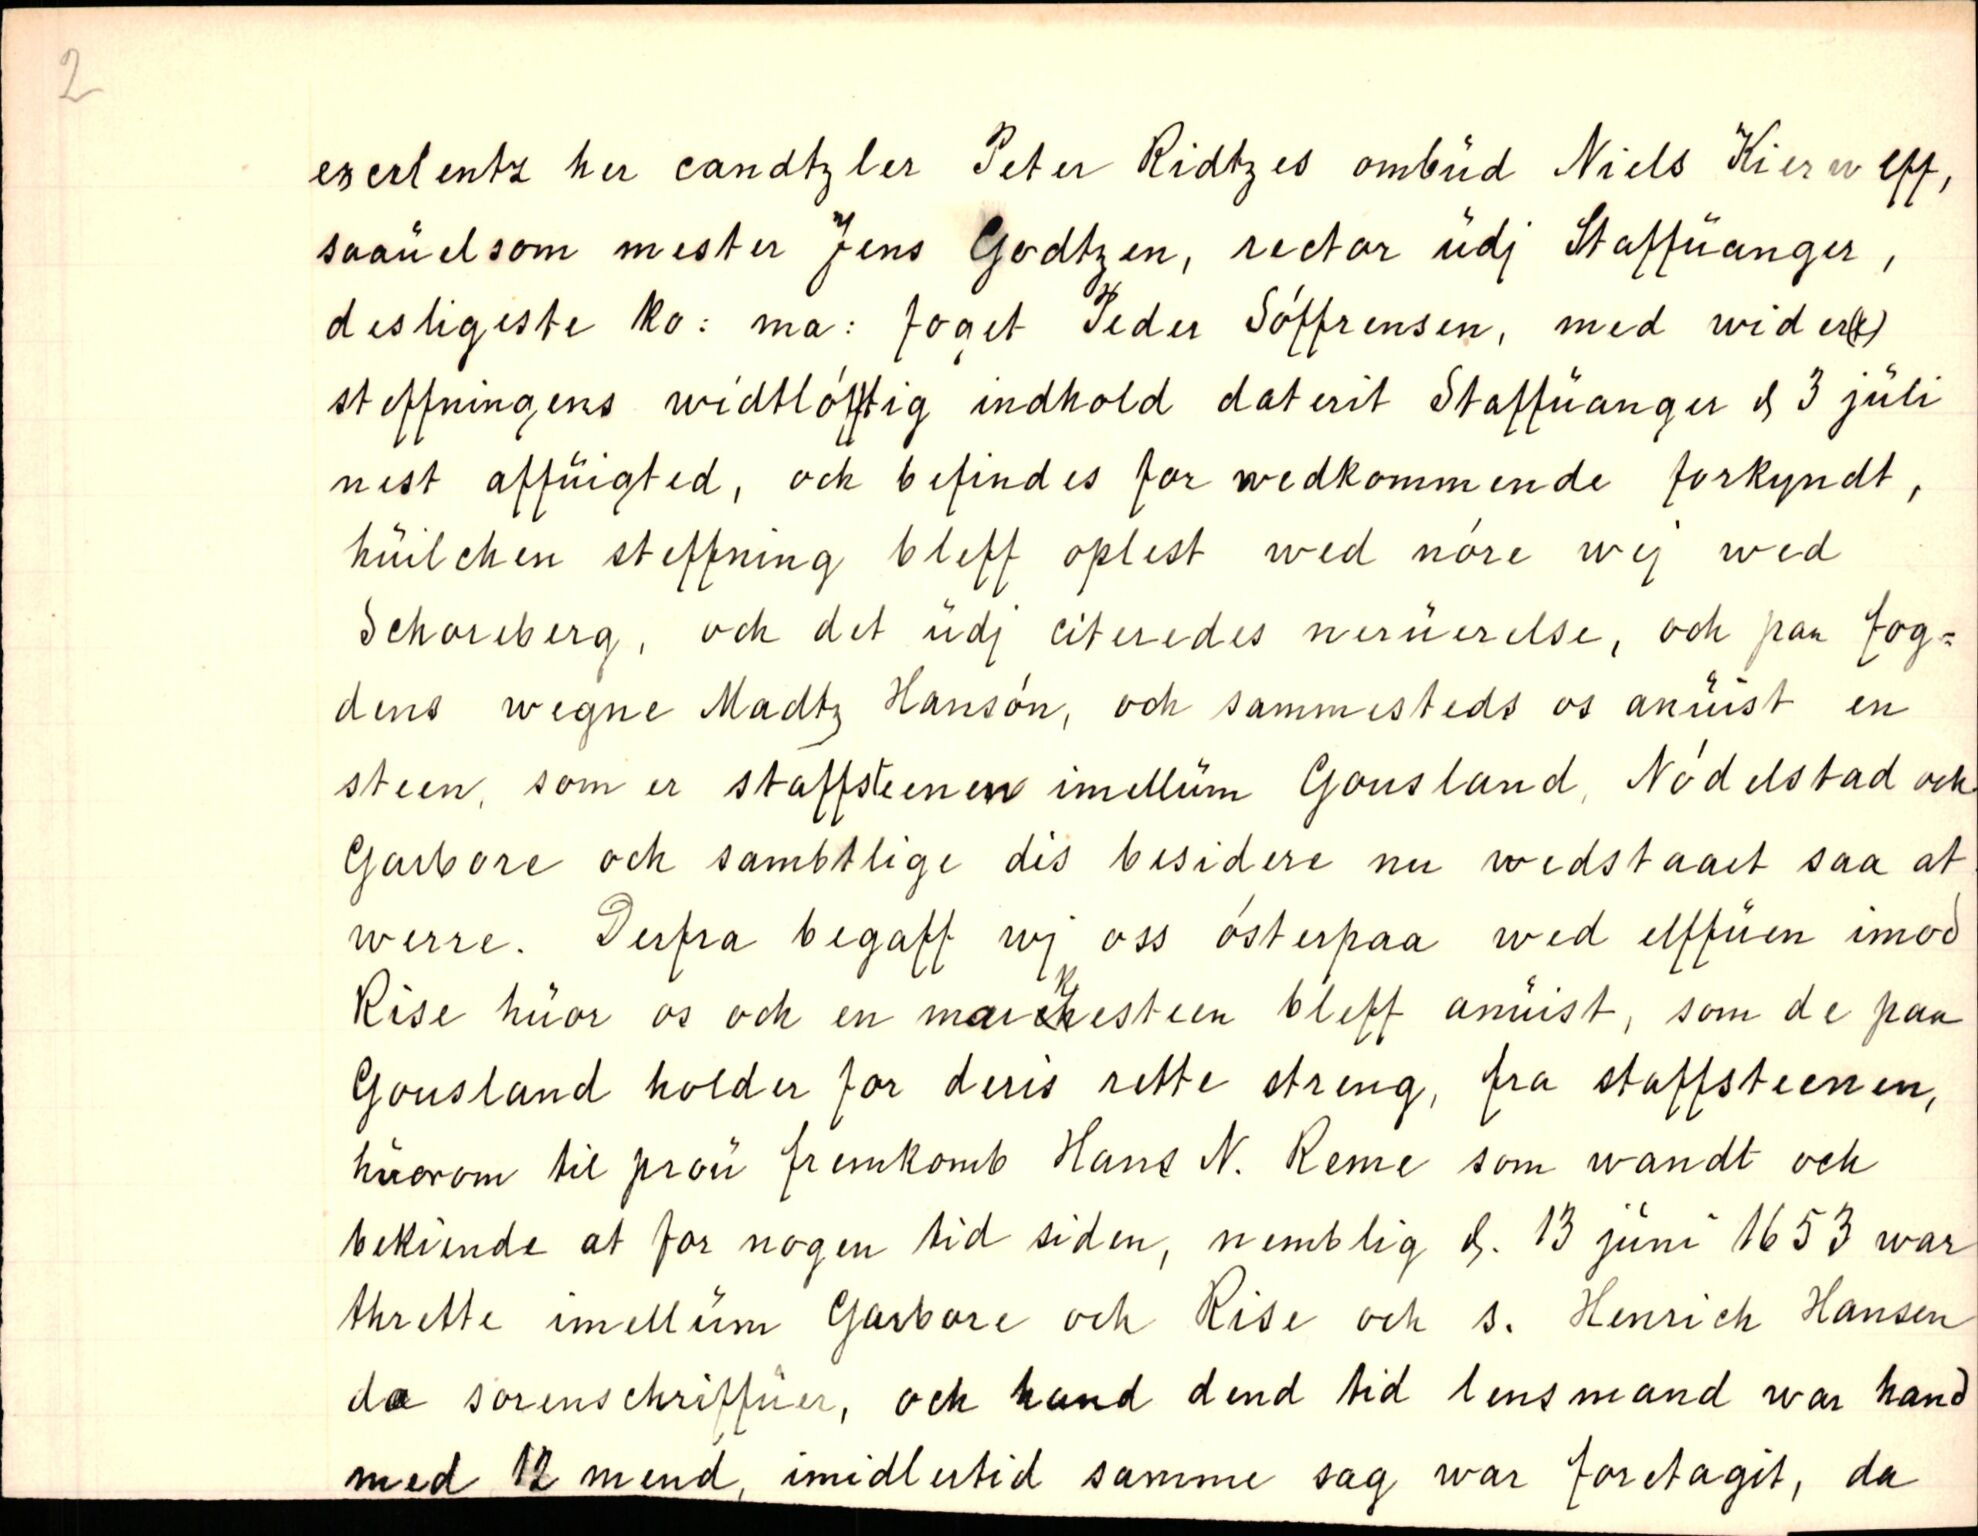 2
excerlentz her candtzler Peter Ridtzes ombüd Niels Kierwlff,
saaüelsom mester Jens Godtzen, rector üdj Staffüanger,
desligeste ko: ma: foget Peder Sóffrensen, med wider(e)
steffningens widtlófftig indhold daterit Staffüanger d 3 jüli
nest affüigted, och befindes for wedkommende forkyndt,
hüilchen steffning bleff oplest wed nóre wej wed
Schoreberg, och det üdj citeredes nerüerelse, och paa fog=
dens wegne Madtz Hansón, och sammesteds os anüist en
steen, som er staffsteenen imellüm Gousland, Nódelstad och
Garbore och sambtlige dis besidere nu wedstaaet saa at
werre. Derfra begaff wj oss ósterpaa wed elffüen imod
Rise hüor os och en markesteen bleff anüist, som de paa
Gousland holder for deris rette streng, fra staffsteenen,
hüorom til proü fremkomb Hans N. Reme som wandt och
bekiende at for nogen tid siden, nemblig d. 13 jüni 1653 war
thrette imellüm Garbore och Rise och s. Henrich Hansen
da sorenschriffüer, och hand dend tid lensmand war hand
med 12 mend, imidlertid samme sag war foretagit, da